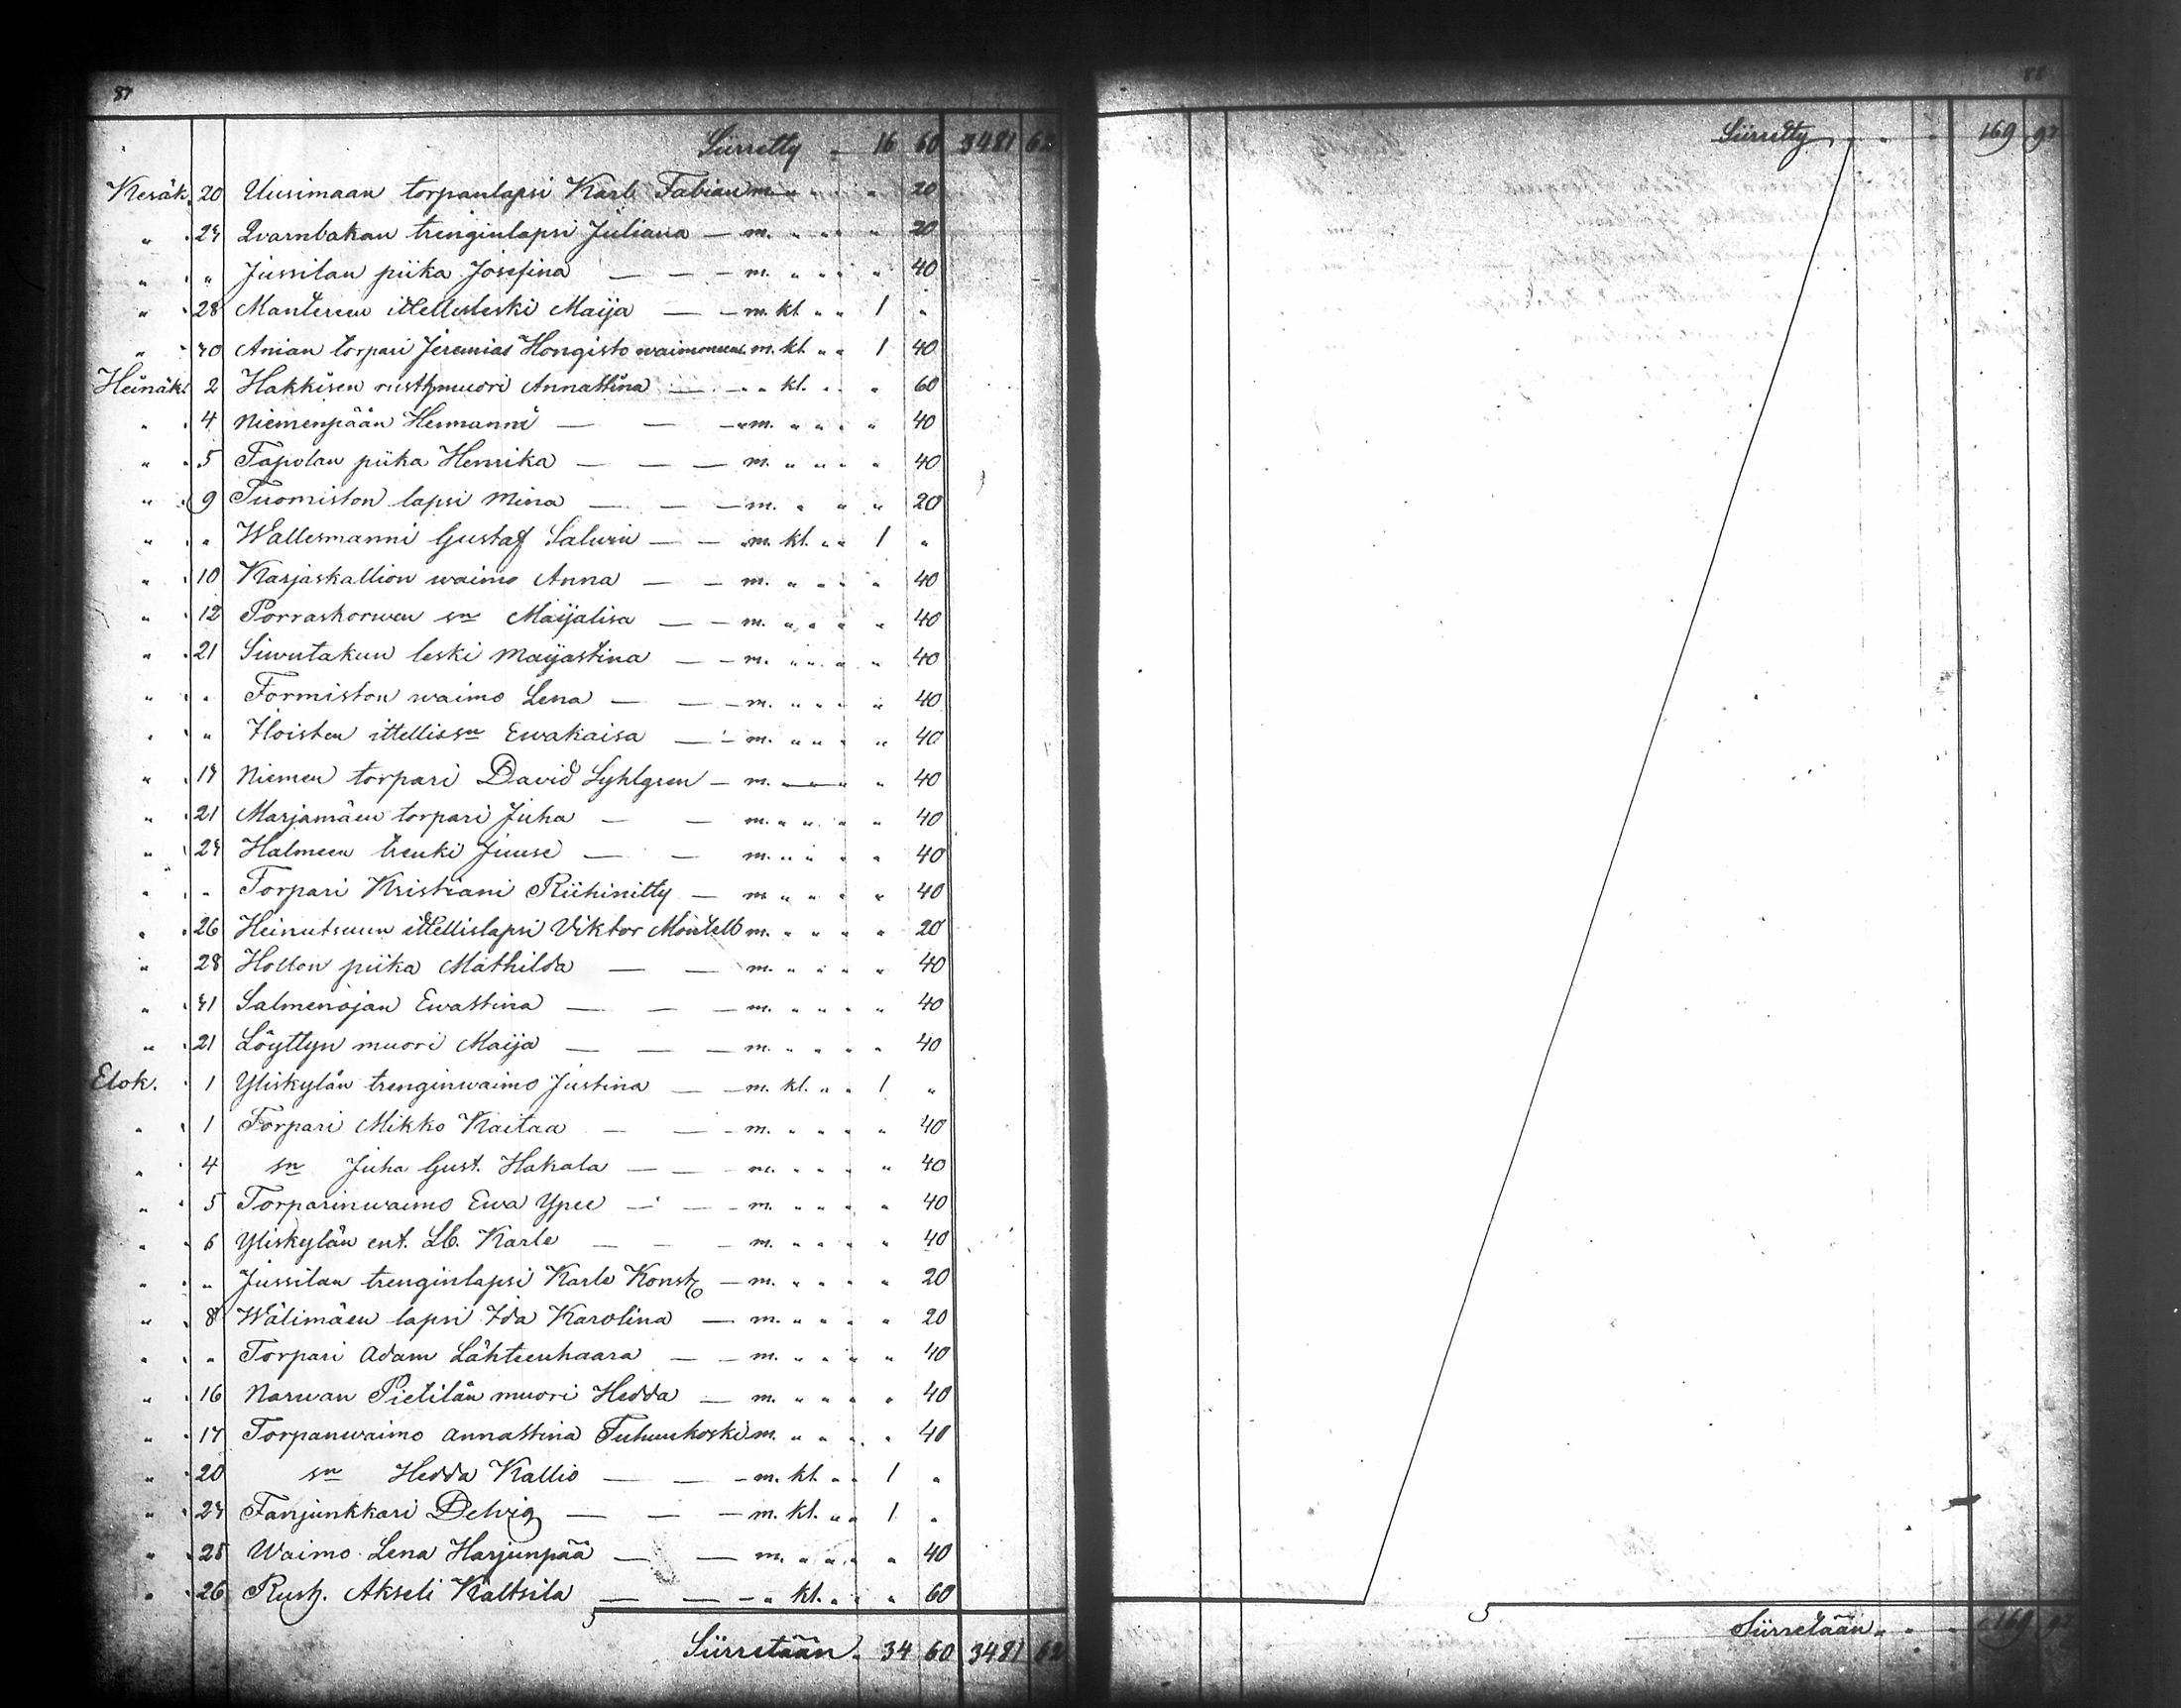 87
Siirretty 16 60 3481 62
Kesäk. 20 Uusimaan torpanlapsi Karl Fabian m. " " " 20
" 23 Qvarnbakan trenginlapsi Juliana — m. " " " 20
" " Jussilan piika Josefina — — — m. " " " 40
" 28 Manteren itellisleski Maija — — m. kl. " " 1 "
" 30 Anian torpari Jeremias Hongisto waimoneens. m. kl. " " 1 40
Heinäk. 2 Hakkisen rusth.muori Annastina — — " kl. " " 60
" 4 Niemenpään Hermanni — — — m. " " " 40
" 5 Tapolan piika Henrika — — — m. " " " 40
" 9 Tuomiston lapsi Mina — — — m. " " " 20
" " Wallesmanni Gustaf Salwin — — m. kl. " " 1 "
" 10 Karjaskallion waimo Anna — — m. " " " 40
" 12 Porraskorwen sn Maijalisa — — m. " " " 40
" 21 leski Maijastina — — m. " " " 40
" " Tormiston waimo Lena — — — m. " " " 40
" " Hoisten itellissn Ewakaisa — — m. " " " 40
" 13 Niemen torpari David Lyhlgren — m. — " 40
" 21 Marjamäen torpari Juha — — m. " " " 40
" 23 Halmeen trenki Juuse — — m. " " " 40
" " Torpari Kristiani Riihinitty — m. " " " 40
" 26 Heinutsuun itellislapsi Viktor Montell m. " " " 20
" 28 Hollon piika Mathilda — — m. " " " 40
" 31 Salmenojan Ewastina — — — m. " " " 40
" 21 Löyttyn muori Maija — — — m. " " " 40
Elok. 1 Yliskylän trenginwaimo Justina — — m. kl. " " 1 "
" 1 Torpari Mikko Kaitaa — — — m. " " " 40
" 4 sn Juha Gust. Hakala — — — m. " " " 40
" 5 Torparinwaimo Ewa Ypee — — — m. " " " 40
" 6 Yliskylän ent. Lb. Karle — — — m. " " " 40
" " Jussilan trenginlapsi Karle Konst. — m. " " " 20
" 8 Wälimäen lapsi Ida Karolina — m. " " " 20
" " Torpari Adam Lähteenhaara — — m. " " " 40
" 16 Narwan Pietilän muori Hedda — m. " " " 40
" 17 Torpanwaimo Annastina Tuhuukoski m. " " " 40
" 20 sn Hedda Kallio — — — m. kl. " " 1 "
" 23 Fanjunkkari Delvig — — — m. kl. " " 1 "
" 25 Waimo Lena Harjunpää — — m. " " " 40
" 26 Rusth. Akseli Kaltsila — — — " kl. " " " 60
Siirretään. 34 60 3481 62
88
Siirretty " " " 169 97
Siirretään " " " 169 97